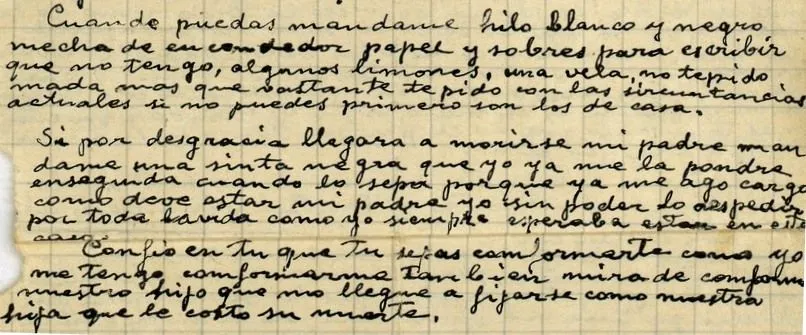 Cuando puedas mandame hilo blanco y negro
mecha de encendedor papel y sobres para escribir
que no tengo, algunos limones, una vela, no te pido
mada mas que vastante te pido con las sircuntancias
actuales si no puedes primero son los de casa.
Si por desgracia llegara a morirse mi padre man
dame una sinta negra que yo ya me la pondre
enseguida cuando lo sepa porque ya me ago cargo
como deve estar mi padre yo sin poder lo despedir
por toda la vida como yo siempre esperaba estar en este
caso.
Confio en tu que tu sepas comformarte como yo
me tengo comformarme tambien mira de comform
nuestro hijo que no llegue a fijarse como nuestra
hija que le costo su muerte.